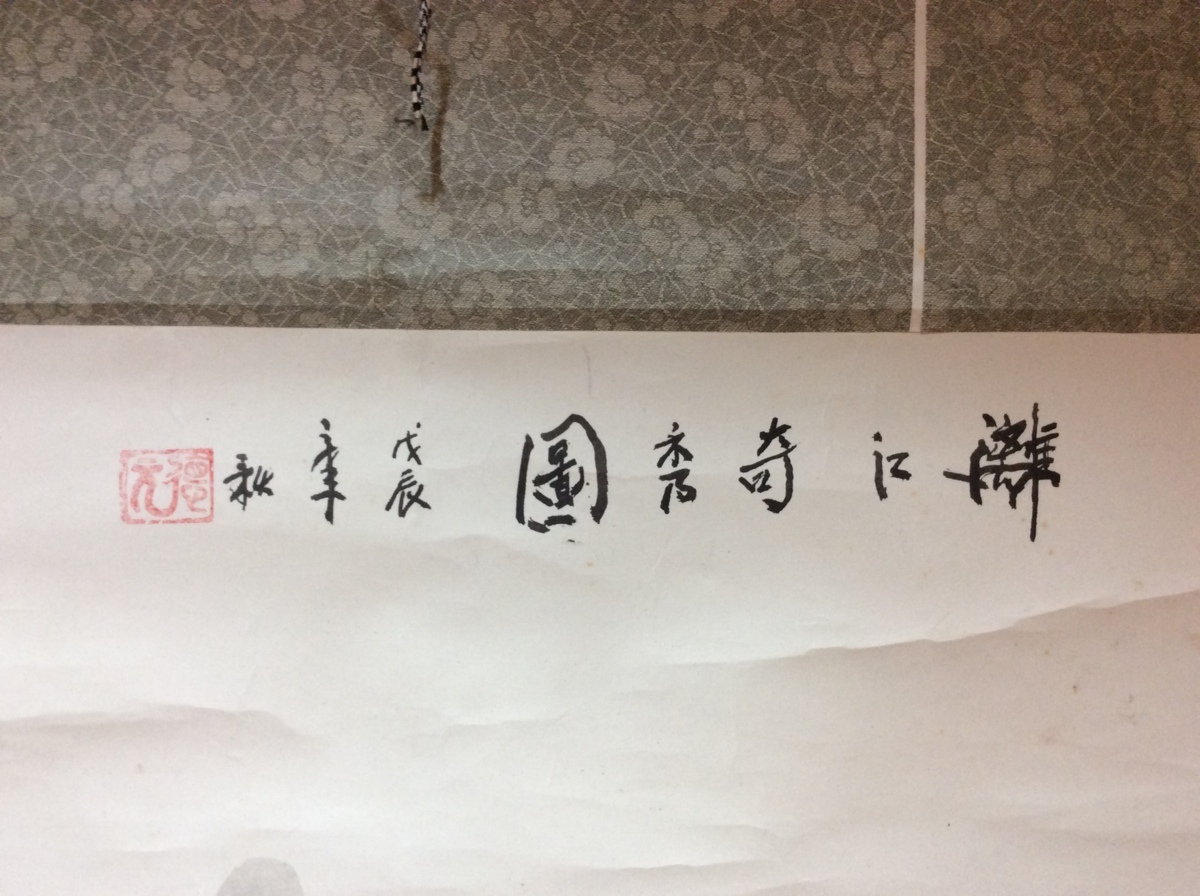 灕江奇秀圖 戊辰年秋